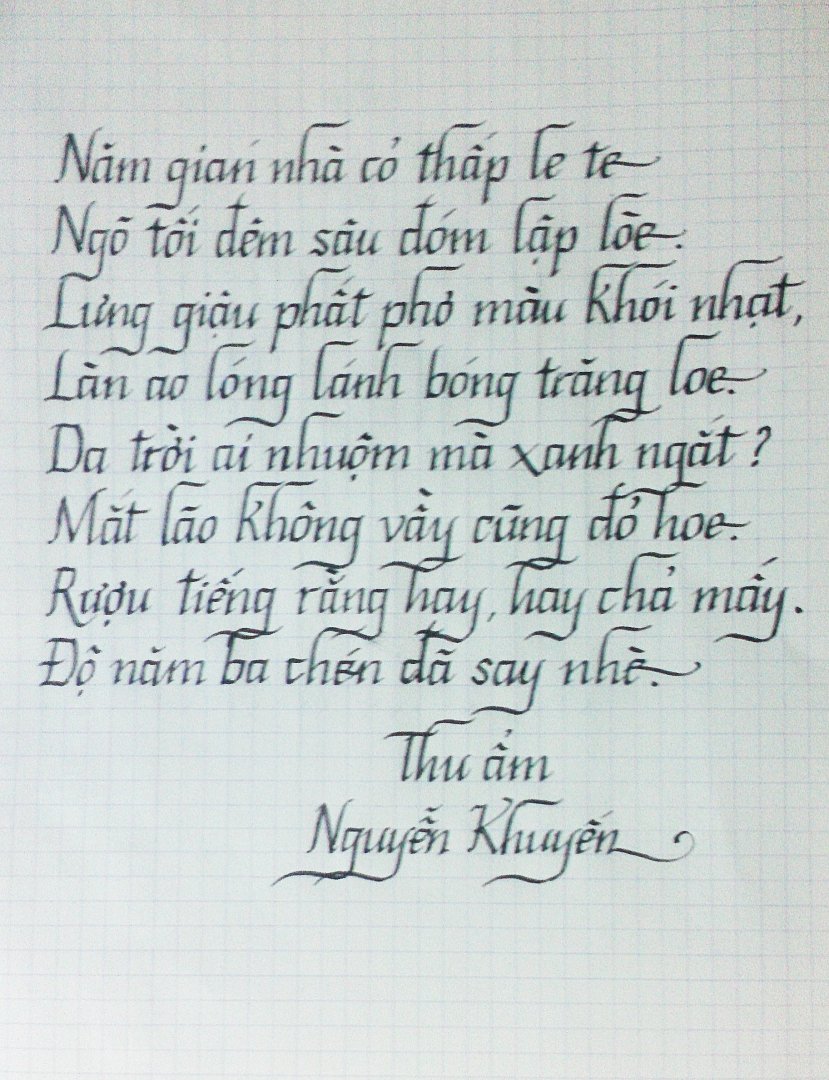 Năm gian nhà cỏ thấp le te
Ngõ tối đêm sâu đóm lập lòe.
Lưng giậu phất phơ màu khói nhạt,
Làn ao lóng lánh bóng trăng loe.
Da trời ai nhuộm mà xanh ngắt ?
Mắt lão không vầy cũng đỏ hoe.
Rượu tiếng rằng hay, hay chả mấy.
Độ năm ba chén đã say nhè.
Thu ẩm
Nguyễn Khuyến